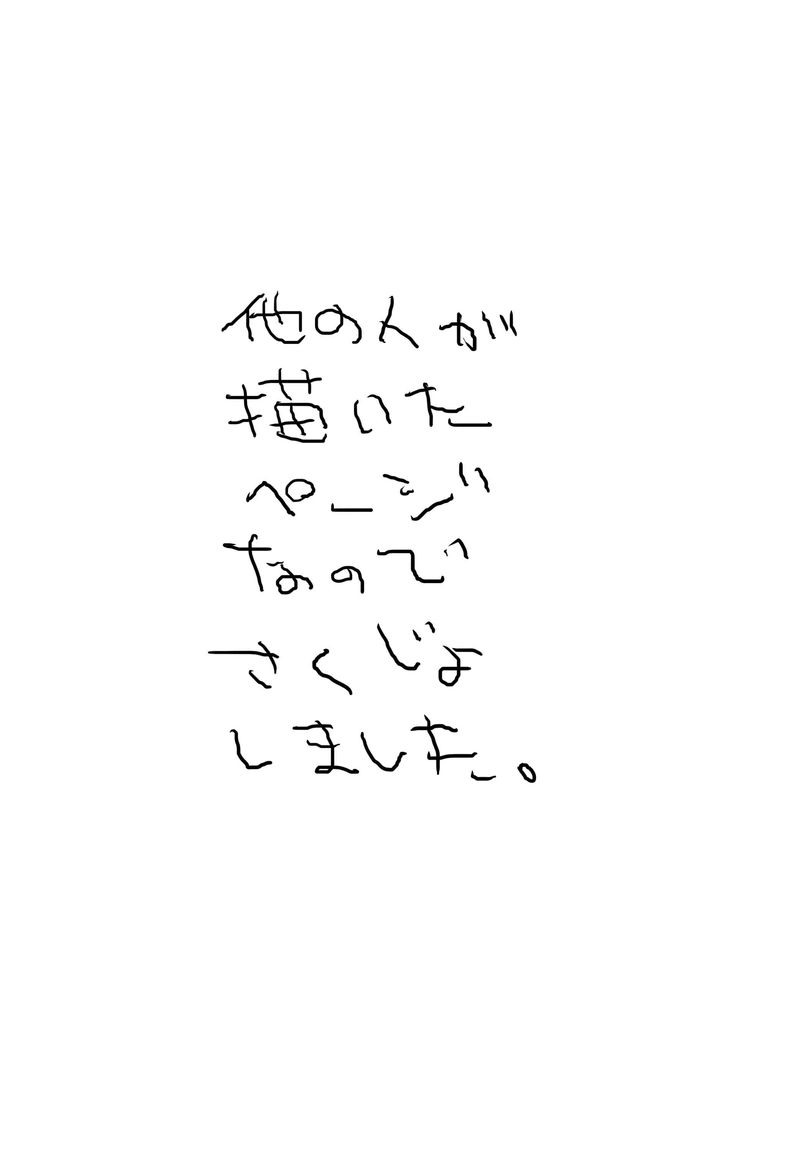 他の人が
描いた
ページ
なので
さくじょ
しました。